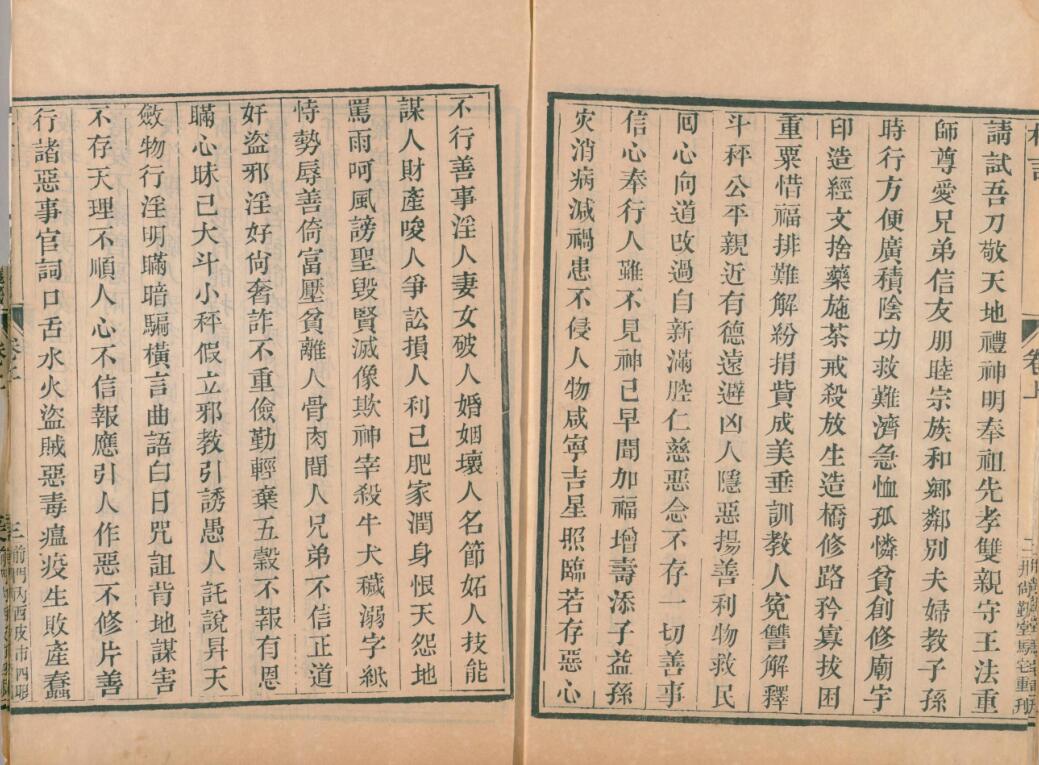 卷上
請試吾刀敬天地禮神明奉祖先孝雙親守王法重
師尊愛兄弟信友朋睦宗族和鄉鄰別夫婦教子孫
時行方便廣積陰功救難濟急恤孤憐貧創修廟宇
印造經文捨藥施茶戒殺放生造橋修路矜寡拔困
重粟惜福排難解紛捐貲成美垂訓教人冤讐解釋
斗秤公平親近有德遠避凶人隱惡揚善利物救民
囘心向道改過自新滿腔仁慈惡念不存一切善事
信心奉行人雖不見神已早聞加福增壽添子益孫
灾消病減禍患不侵人物咸寧吉星照臨若存惡心
不行善事淫人妻女破人婚姻壞人名節妬人技能
謀人財產唆人爭訟損人利己肥家潤身恨天怨地
罵雨呵風謗聖毀賢滅像欺神宰殺牛犬穢溺字紙
恃勢辱善倚富壓貧離人骨肉間人兄弟不信正道
奸盜邪淫好尙奢詐不重儉勤輕棄五穀不報有恩
瞞心昧己大斗小秤假立邪教引誘愚人託說昇天
斂物行淫明瞞暗騙橫言曲語白日咒詛背地謀害
不存天理不順人心不信報應引人作惡不修片善
行諸惡事官詞口舌水火盜賊惡毒瘟疫生敗產蠢
三
前門內西皮市西